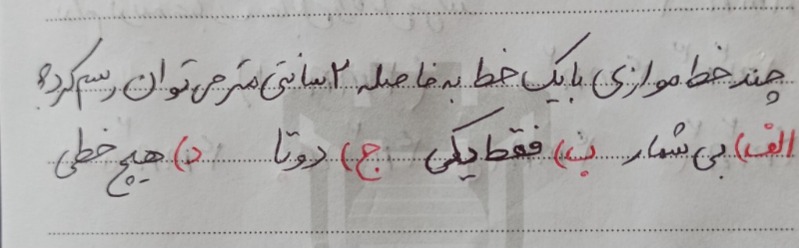 چند خط موازی با یک خط به فاصله ۲ سانتی متر می توان رسم کرد؟
الف) بی شمار ب) فقط یکی ج) دوتا د) هیچ خطی